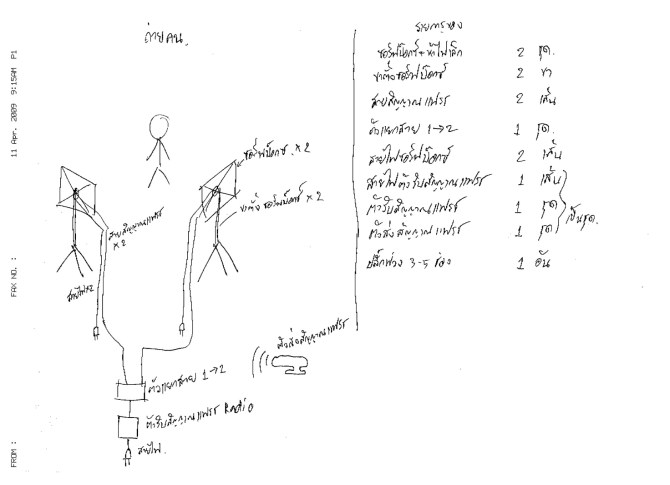 11 Apr. 2009 9:15AM P1
FAX NO. :
FROM :
ถ่ายคน
ซอร์ฟบ็อกซ์ ×2
ขาตั้งซอร์ฟบ็อกซ์ ×2
สายสัญญาณแฟรช
×2
สายไฟ×2
ตัวส่งสัญญาณแฟรช
ตัวแยกสาย 1→2
ตัวรับสัญญาณแฟรช Radio
สายไฟ
รายการของ
ซอร์ฟบ็อกซ์+หัวไฟเล็ก 2 ชุด.
ขาตั้งซอร์ฟบ็อกซ์ 2 ขา
สายสัญญาณแฟรช 2 เส้น
ตัวแยกสาย 1→2 1 ชุด.
สายไฟซอร์ฟบ็อกซ์ 2 เส้น
สายไฟตัวรับสัญญาณแฟรช 1 เส้น
ตัวรับสัญญาณแฟรช 1 ชุด
ตัวส่งสัญญาณแฟรช 1 ชุด
เป็นชุด.
ปลั๊กพ่วง 3-5 ช่อง 1 อัน